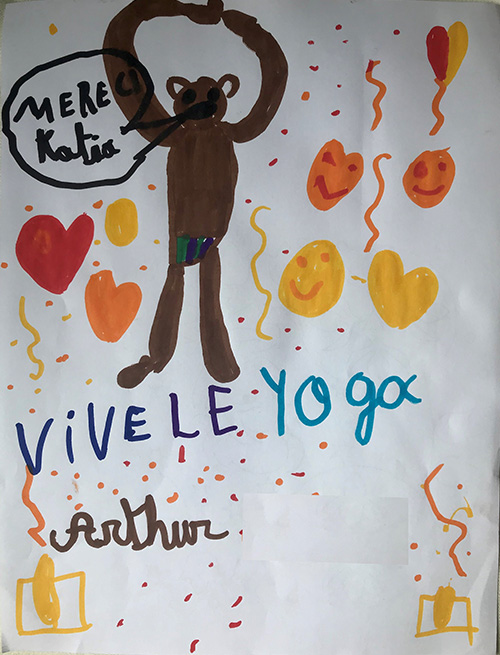 MERECI
Katia
ViVE LE YOga
Arthur